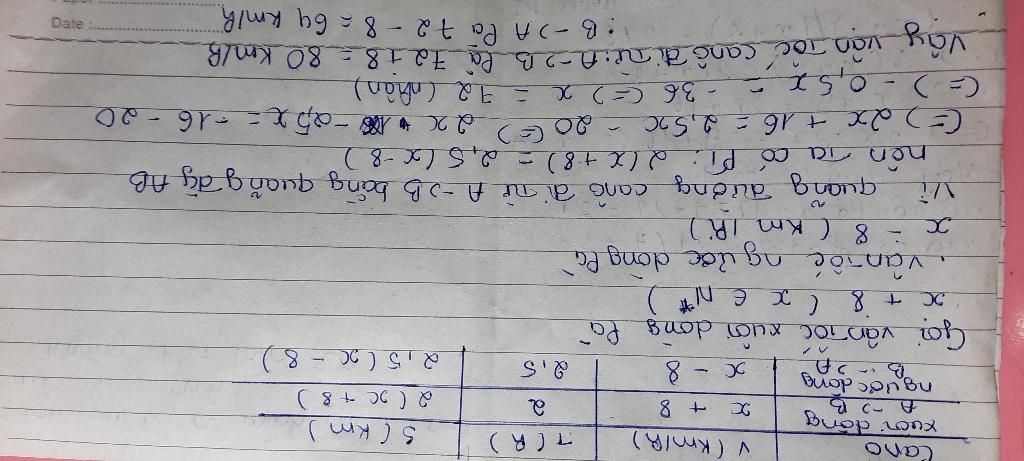 Cano | V (km/h) | T (h) | S (km)
xuôi dòng A -> B | x + 8 | 2 | 2(x + 8)
ngược dòng B -> A | x - 8 | 2,5 | 2,5(x - 8)
Gọi vận tốc xuôi dòng là
x + 8 (x ∈ N*)
. vận tốc ngược dòng là
x - 8 (km/h)
Vì quãng đường canô đi từ A -> B bằng quãng đg AB
nên ta có Pt: 2(x + 8) = 2,5(x - 8)
(=) 2x + 16 = 2,5x - 20 (=) 2x - 2,5x = -16 - 20
(=) - 0,5x = - 36 (=) x = 72 (nhận)
Vậy vận tốc canô đi từ: A -> B là 72 + 8 = 80 km/h
: B -> A là 72 - 8 = 64 km/h
Date :